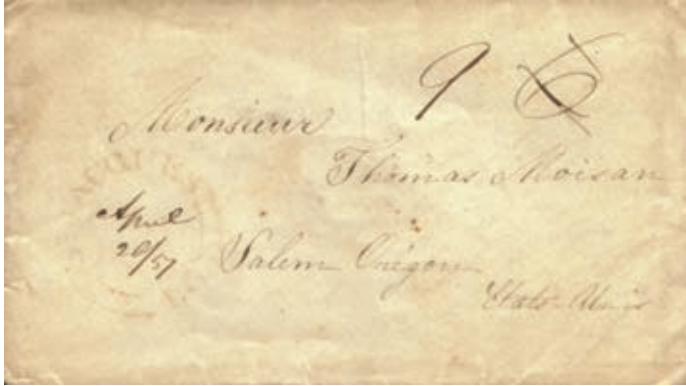 9
Monsieur
Thomas Moisan
April
20/57
Salem Orégon
Etats-Unis